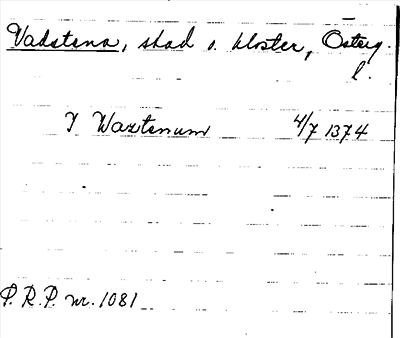 Vadstena, stad o. kloster, Österg.
l.
I Waztenum 4/7 1374
P.R.P. nr. 1081